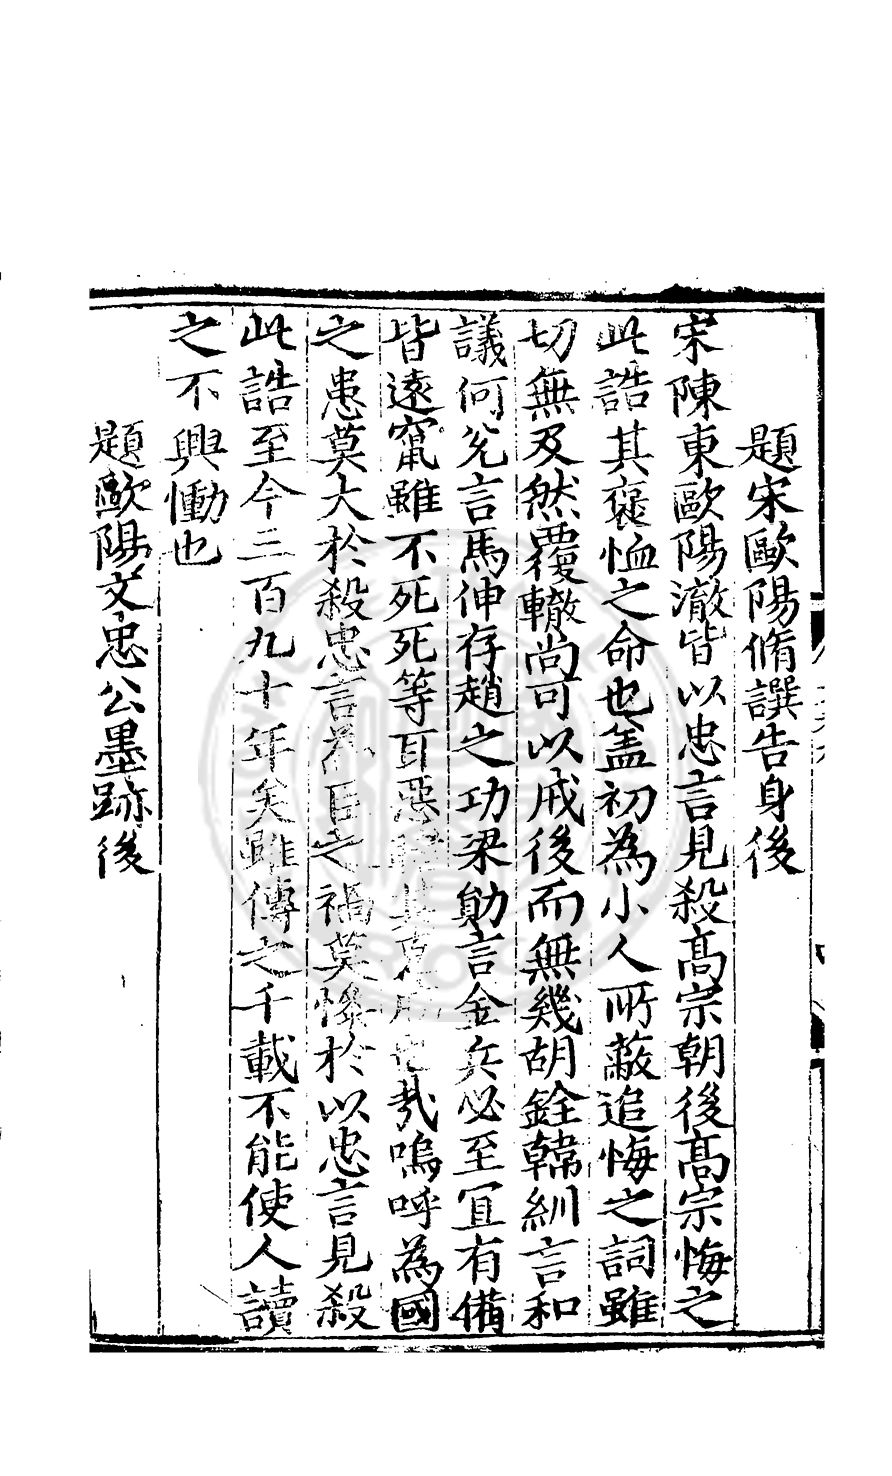 題宋歐陽脩譔告身後
宋陳東歐陽澈皆以忠言見殺高宗朝後高宗悔之
此誥其褒恤之命也盖初為小人所蔽追悔之詞雖
切無及然覆轍尚可以戒後而無幾胡銓韓紃言和
議何兊言馬伸存趙之功梁勛言金兵必至冝有備
皆遠竄雖不死死等耳惡其也哉嗚呼為國
之患莫大於殺忠言為臣之禍莫慘於以忠言見殺
此誥至今三百九十年矣雖傳之千載不能使人讀
之不興慟也
題歐陽文忠公墨跡後